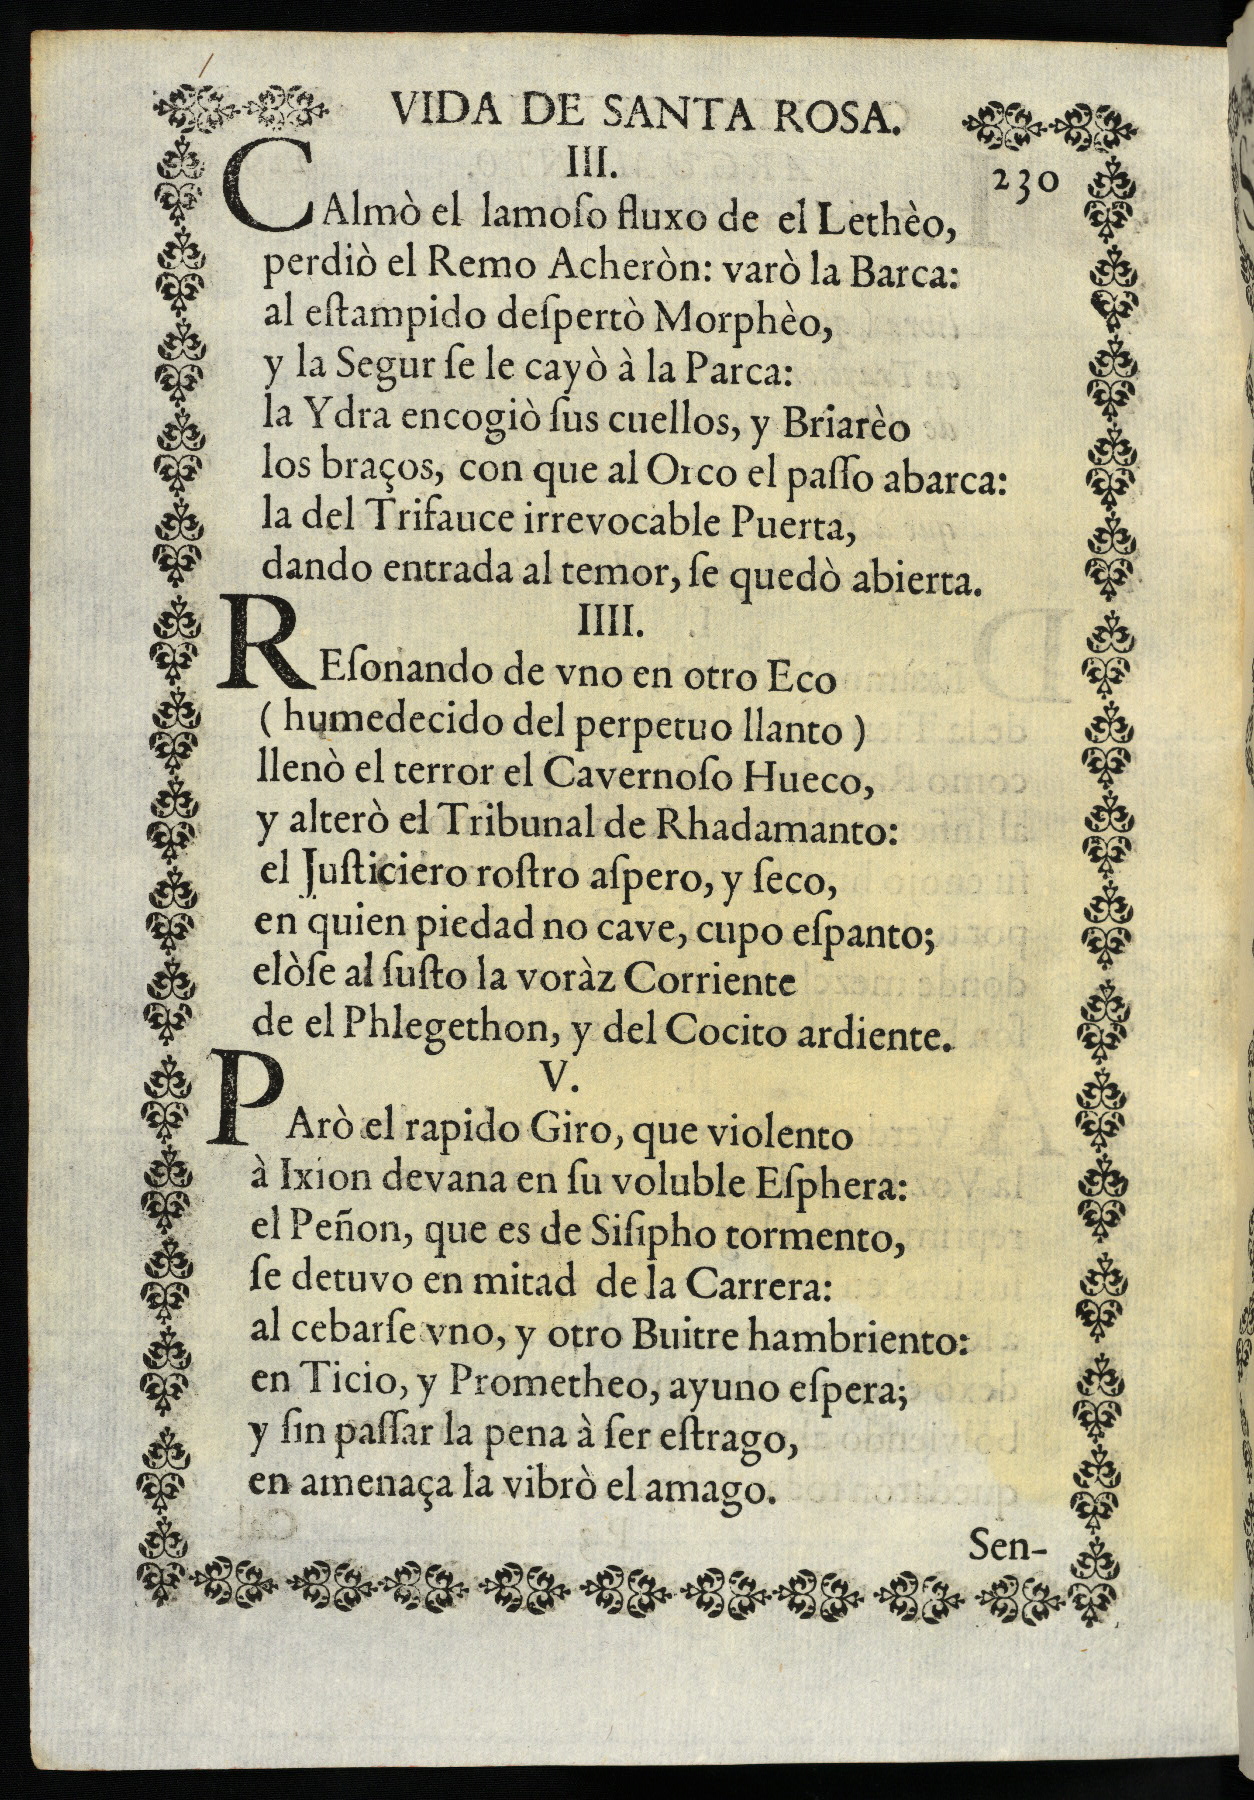 VIDA DE SANTA ROSA.
III.
230
CAlmò el lamoſo fluxo de el Lethèo,
perdiò el Remo Acheròn: varò la Barca:
al eſtampido deſpertò Morphèo,
y la Segur ſe le cayò à la Parca:
la Ydra encogiò ſus cuellos, y Briarèo
los braços, con que al Orco el paſſo abarca:
la del Trifauce irrevocable Puerta,
dando entrada al temor, ſe quedò abierta.
IIII.
REſonando de vno en otro Eco
( humedecido del perpetuo llanto )
llenò el terror el Cavernoſo Hueco,
y alterò el Tribunal de Rhadamanto:
el Juſticiero roſtro aſpero, y ſeco,
en quien piedad no cave, cupo eſpanto;
elòſe al ſuſto la voràz Corriente
de el Phlegethon, y del Cocito ardiente.
V.
PArò el rapido Giro, que violento
à Ixion devana en ſu voluble Eſphera:
el Peñon, que es de Siſipho tormento,
ſe detuvo en mitad de la Carrera:
al cebarſe vno, y otro Buitre hambriento:
en Ticio, y Prometheo, ayuno eſpera;
y ſin paſſar la pena à ſer eſtrago,
en amenaça la vibrò el amago.
Sen-